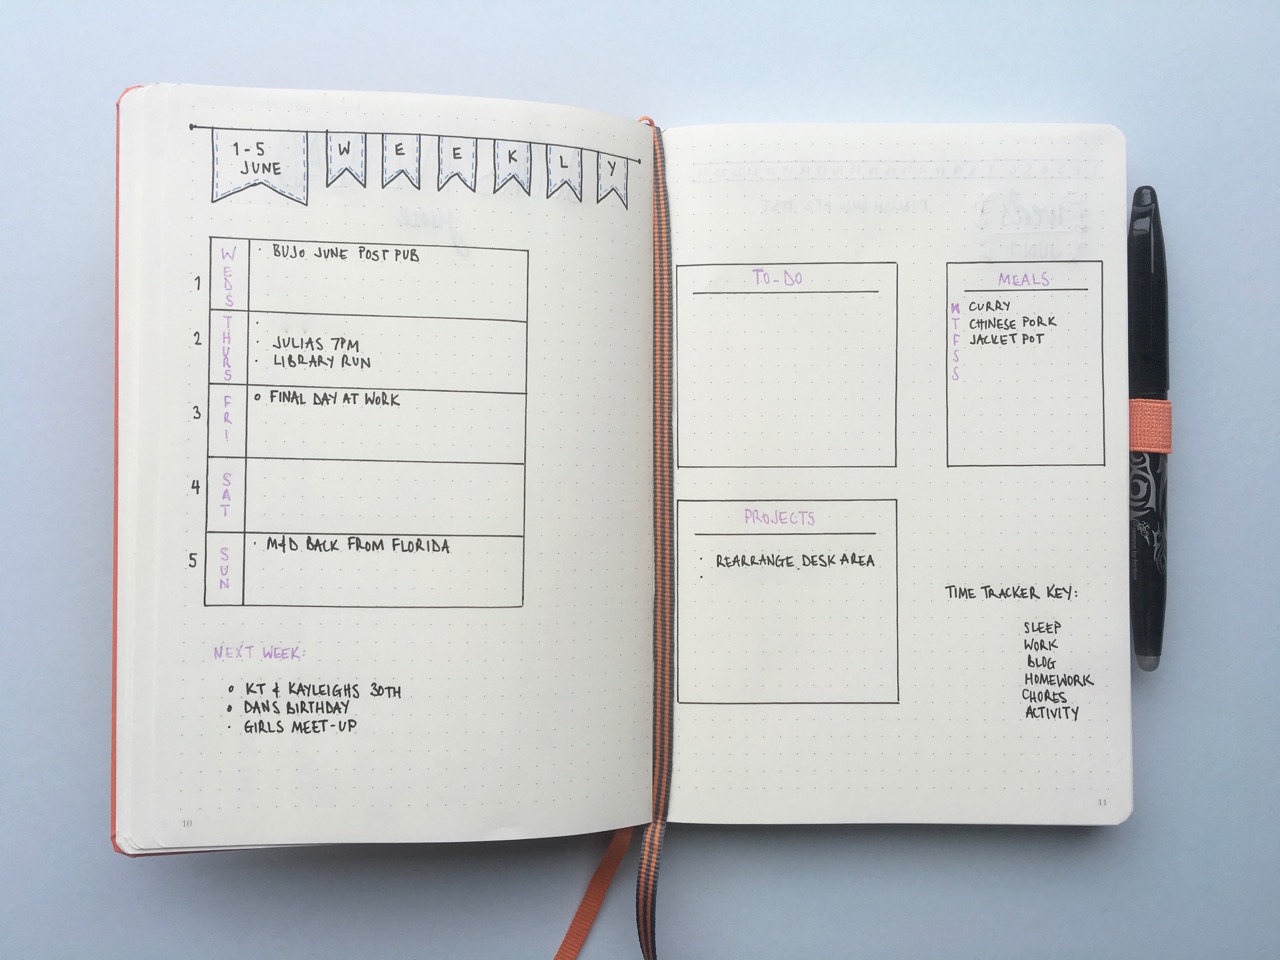 1-5
JUNE
W E E K L Y
1 WEDS
· BUJO JUNE POST PUB
2 THURS
·
· JULIAS 7PM
· LIBRARY RUN
3 FRI
○ FINAL DAY AT WORK
4 SAT
5 SUN
· M&D BACK FROM FLORIDA
NEXT WEEK:
○ KT & KAYLEIGHS 30TH
○ DANS BIRTHDAY
· GIRLS MEET-UP
10
TO-DO
MEALS
W CURRY
T CHINESE PORK
F JACKET POT
S
S
PROJECTS
· REARRANGE DESK AREA
·
TIME TRACKER KEY:
SLEEP
WORK
BLOG
HOMEWORK
CHORES
ACTIVITY
11